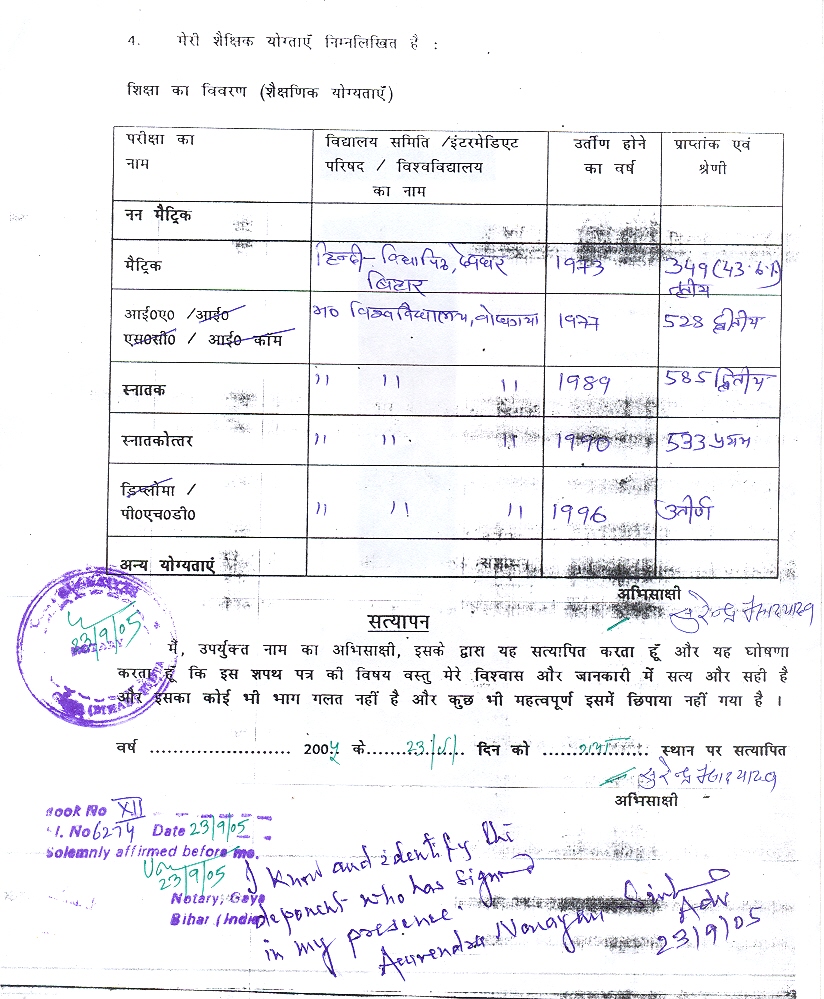 4. मेरी शैक्षिक योग्ताएँ निम्नलिखित है :
शिक्षा का विवरण (शैक्षणिक योग्यताएँ)
परीक्षा का नाम | विद्यालय समिति /इंटरमेडिएट परिषद / विश्वविद्यालय का नाम | उर्तीण होने का वर्ष | प्राप्तांक एवं श्रेणी
नन मैट्रिक
मैट्रिक | हिन्दी - विद्यापिठ, देवघर बिहार | 1973 | 349 (43.6%) तृतीय
आई0ए0 /आई0 एस0सी0 / आई0 कॉम | म० विश्वविद्यालय, बोधगया | 1977 | 528 द्वितीय
स्नातक | " " " | 1989 | 585 द्वितीय
स्नातकोत्तर | " " " | 1990 | 533 प्रथम
डिप्लोमा / पी0एच0डी0 | " " " | 1996 | उतीर्ण
अन्य योग्यताएं
अभिसाक्षी
सत्यापन
23/9/05
NOTARY
मैं, उपर्युक्त नाम का अभिसाक्षी, इसके द्वारा यह सत्यापित करता हूँ और यह घोषणा
करता हूँ कि इस शपथ पत्र की विषय वस्तु मेरे विश्वास और जानकारी में सत्य और सही है
और इसका कोई भी भाग गलत नहीं है और कुछ भी महत्वपूर्ण इसमें छिपाया नहीं गया है ।
वर्ष ........................ 2005 के.......23/9/....... दिन को ....गया.... स्थान पर सत्यापित
अभिसाक्षी
Book No XII
Sl. No 6274 Date 23/9/05
Solemnly affirmed before me.
23/9/05
Notary, Gaya
Bihar (India)
I know and identify the
deponent who has signed
in my presence.
Narayan Sinha
Adv
23/9/05